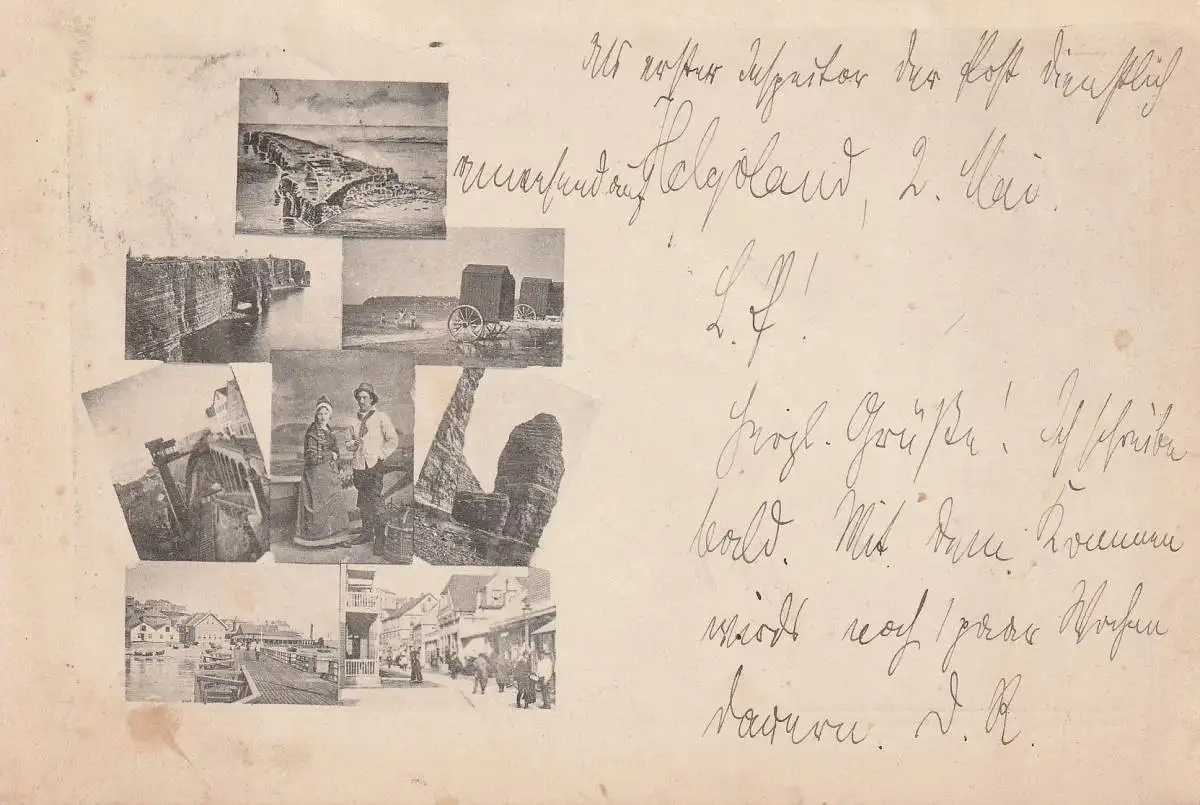 Als erster Inspector der Post dienstlich
anwesend auf Helgoland, 2. Mai.
L. F!
Herzl. Grüße! Ich schreibe
bald. Mit dem Kommen
wirds noch 1 paar Wochen
dauern. D. R.